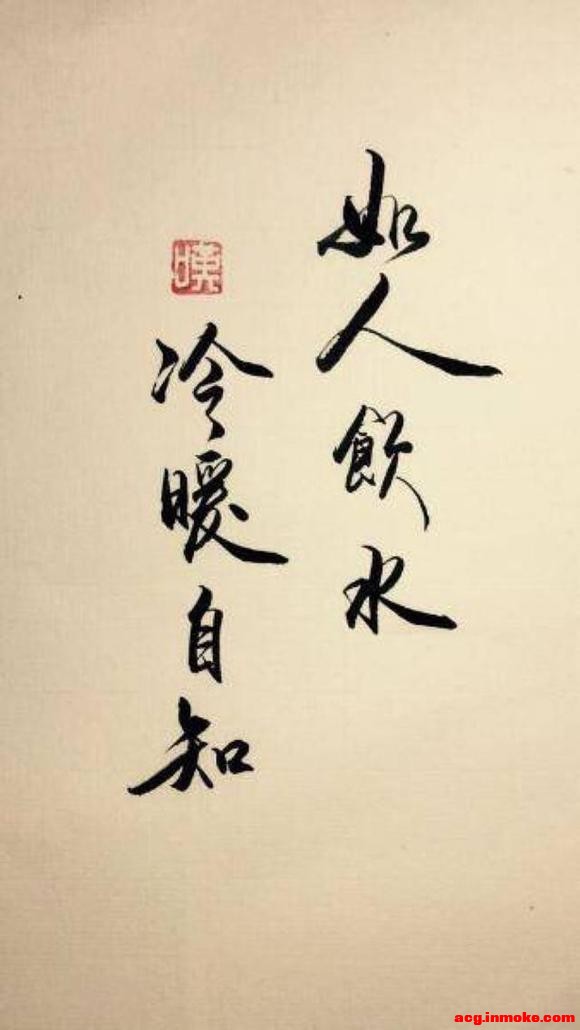 如人飲水
冷暖自知
acg.inmoke.com